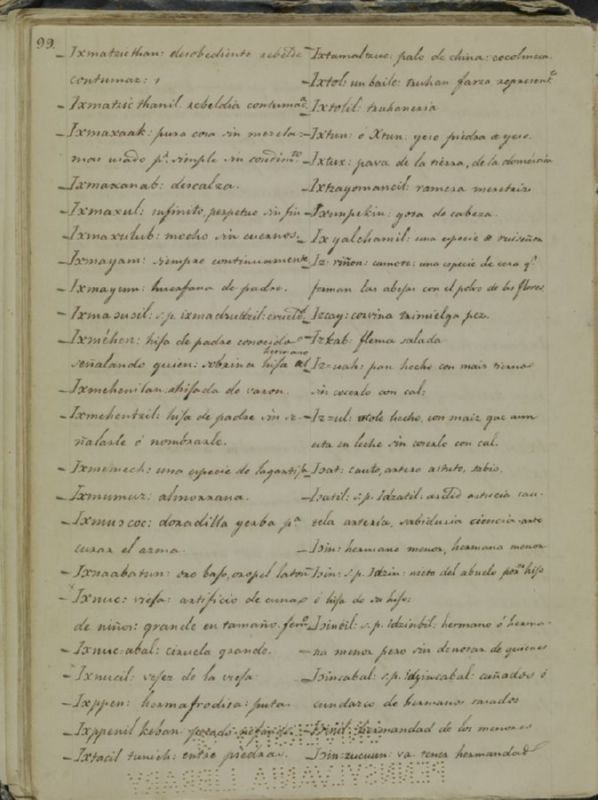 99.
Ixmatzicthan: desobediente rebelde
contumaz:
Ixmatzicthanil rebeldia contumaz
Ixmaxaak: pura cosa sin mezcla:
mas usado pr. simple sin condimto
Ixmaxanab: descalza.
Ixmaxul: infinito, perpetuo sin fin
Ixmaxulub: mocho sin cuernos.
Ixmayam: siempre continuamente
Ixmayum: huerfana de padre.
Ixmasusil: s.p. ixmadzudzil:
Ixmehen: hija de padre conocido
señalando quien: sobrina hija del hermano
Ixmehenilan: ahijada de varon.
Ixmehentzil: hija de padre sin se-
ñalarle ó nombrarle.
Ixmemech: una especie de lagartija
Ixmumuz: almorrana.
Ixmuscoc: doradilla yerba pa
curar el asma.
Ixnaabatun: oro bajo, oropel laton
Ixnuc: vieja: artificio de cunas
de niños: grande en tamaño femo
Ixnuc-abal: ciruela grande.
Ixnucil: vejez de la vieja
Ixppen: hermafrodita: puta
Ixppenil keban: pecado nefando
Ixtacil tunich: entre piedras.
Ixtamalzuc: palo de china: cocolmeca
Ixtol: un baile: truhan farza represente
Ixtolil: truhaneria
Ixtun: ó Xtun: yeso piedra de yeso
Ixtux: pava de la tierra, de la domestica
Ixtzayomancil: ramera meretriz
Ixunpekin: gota de cabeza.
Ixyalchamil: una especie de ruiseñor
Iz: riñon: camote: una especie de cera q.
forman las abejas con el polvo de las flores
Izcay: corvina raimielga pez.
Izkab: flema salada
Iz-uah: pan hecho con maiz tierno
sin cocerlo con cal:
Iz-ul: atole hecho, con maiz que aun
esta en leche sin cocerlo con cal.
Isat: cauto, artero astuto, sabio.
Isatil: s.p. idzatil: ardid astucia cau-
tela arteria, sabiduria ciencia arte
Isin: hermano menor, hermana menor
Isin: s.p. Idzin: nieto del abuelo por su hijo
ó hija de su hijo:
Isinbil: s.p. idzinbil: hermano ó herma-
na menor pero sin denotar de quienes
Isincabal: s.p. idzincabal: cuñados ó
cuñadazco de hermanos casados
Isinil: hermandad de los menores
Isin-sucuun: va tener hermandad
PENNSYLVANIA LIBRARY